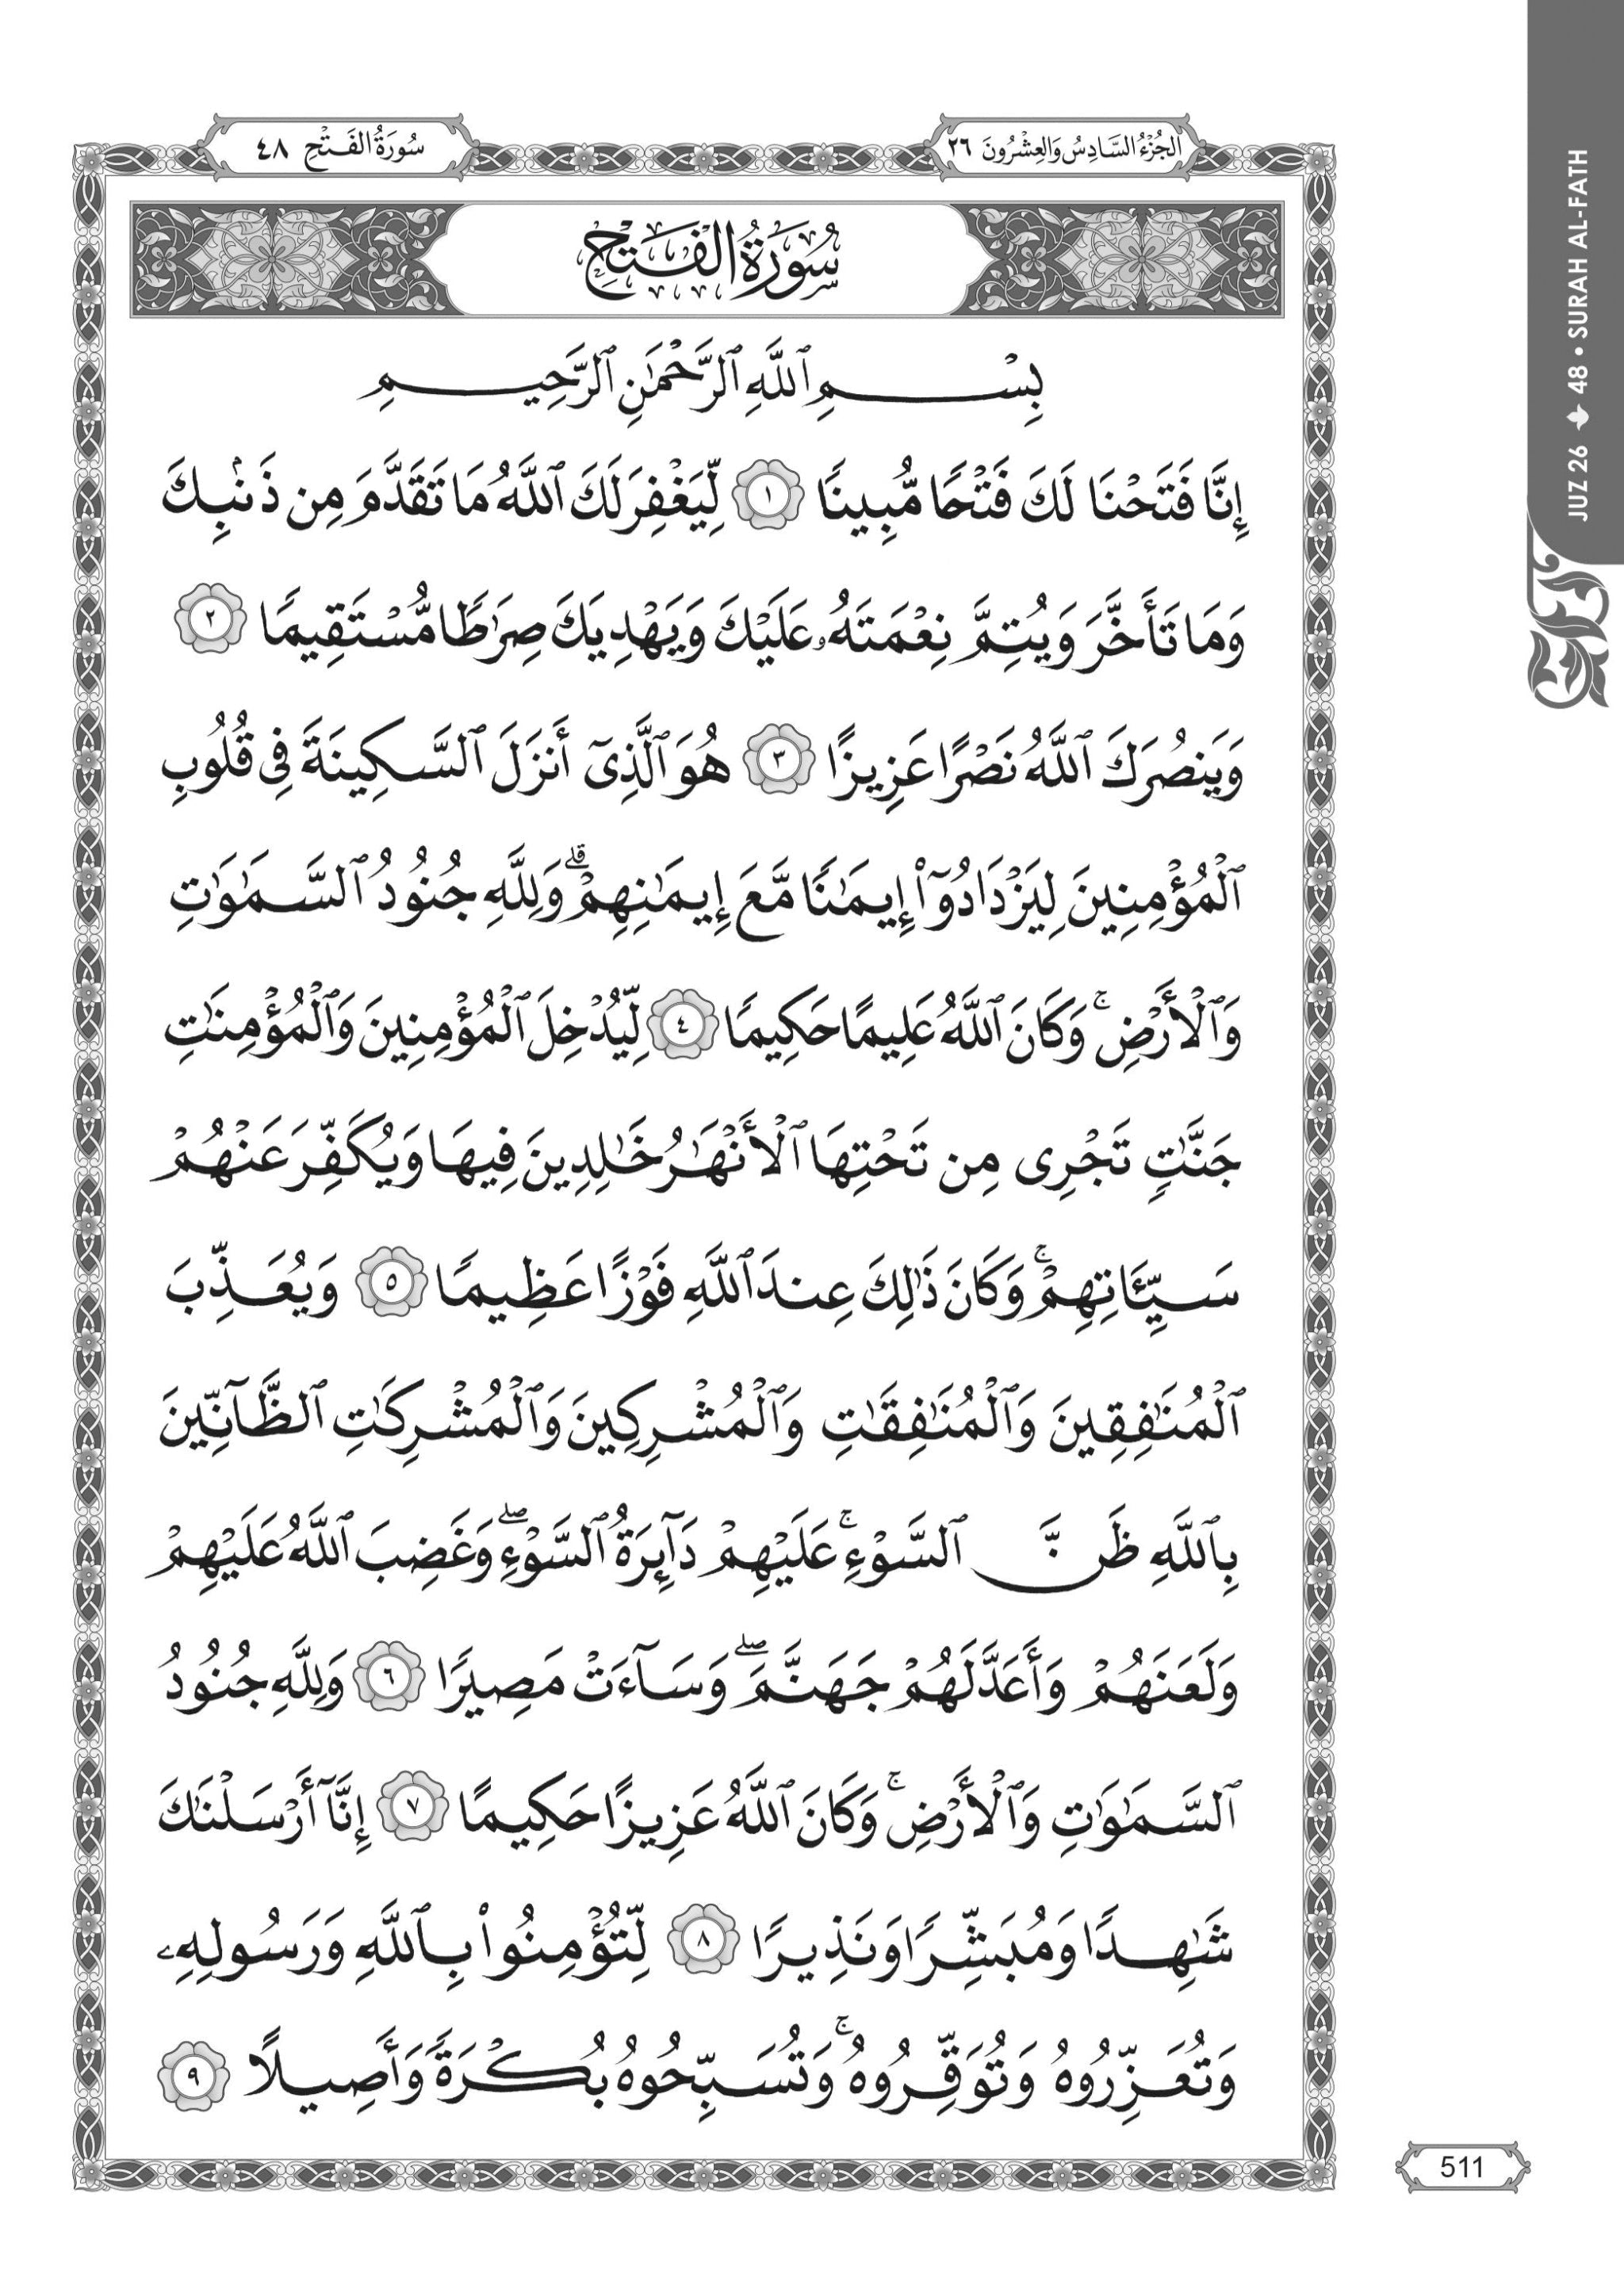 الجُزْءُ السَّادِسُ وَالعِشْرُونَ ٢٦
سُورَةُ الفَتْحِ ٤٨
JUZ 26 48 • SURAH AL-FATH
سُورَةُ الفَتْحِ
بِسْمِ ٱللَّهِ ٱلرَّحْمَٰنِ ٱلرَّحِيمِ
إِنَّا فَتَحْنَا لَكَ فَتْحًا مُّبِينًا ١ لِّيَغْفِرَ لَكَ ٱللَّهُ مَا تَقَدَّمَ مِن ذَنۢبِكَ
وَمَا تَأَخَّرَ وَيُتِمَّ نِعْمَتَهُۥ عَلَيْكَ وَيَهْدِيَكَ صِرَٰطًا مُّسْتَقِيمًا ٢
وَيَنصُرَكَ ٱللَّهُ نَصْرًا عَزِيزًا ٣ هُوَ ٱلَّذِىٓ أَنزَلَ ٱلسَّكِينَةَ فِى قُلُوبِ
ٱلْمُؤْمِنِينَ لِيَزْدَادُوٓا۟ إِيمَٰنًا مَّعَ إِيمَٰنِهِمْ ۗ وَلِلَّهِ جُنُودُ ٱلسَّمَٰوَٰتِ
وَٱلْأَرْضِ ۚ وَكَانَ ٱللَّهُ عَلِيمًا حَكِيمًا ٤ لِّيُدْخِلَ ٱلْمُؤْمِنِينَ وَٱلْمُؤْمِنَٰتِ
جَنَّٰتٍ تَجْرِى مِن تَحْتِهَا ٱلْأَنْهَٰرُ خَٰلِدِينَ فِيهَا وَيُكَفِّرَ عَنْهُمْ
سَيِّـَٔاتِهِمْ ۚ وَكَانَ ذَٰلِكَ عِندَ ٱللَّهِ فَوْزًا عَظِيمًا ٥ وَيُعَذِّبَ
ٱلْمُنَٰفِقِينَ وَٱلْمُنَٰفِقَٰتِ وَٱلْمُشْرِكِينَ وَٱلْمُشْرِكَٰتِ ٱلظَّآنِّينَ
بِٱللَّهِ ظَنَّ ٱلسَّوْءِ ۚ عَلَيْهِمْ دَآئِرَةُ ٱلسَّوْءِ ۖ وَغَضِبَ ٱللَّهُ عَلَيْهِمْ
وَلَعَنَهُمْ وَأَعَدَّ لَهُمْ جَهَنَّمَ ۖ وَسَآءَتْ مَصِيرًا ٦ وَلِلَّهِ جُنُودُ
ٱلسَّمَٰوَٰتِ وَٱلْأَرْضِ ۚ وَكَانَ ٱللَّهُ عَزِيزًا حَكِيمًا ٧ إِنَّآ أَرْسَلْنَٰكَ
شَٰهِدًا وَمُبَشِّرًا وَنَذِيرًا ٨ لِّتُؤْمِنُوا۟ بِٱللَّهِ وَرَسُولِهِۦ
وَتُعَزِّرُوهُ وَتُوَقِّرُوهُ ۚ وَتُسَبِّحُوهُ بُكْرَةً وَأَصِيلًا ٩
511